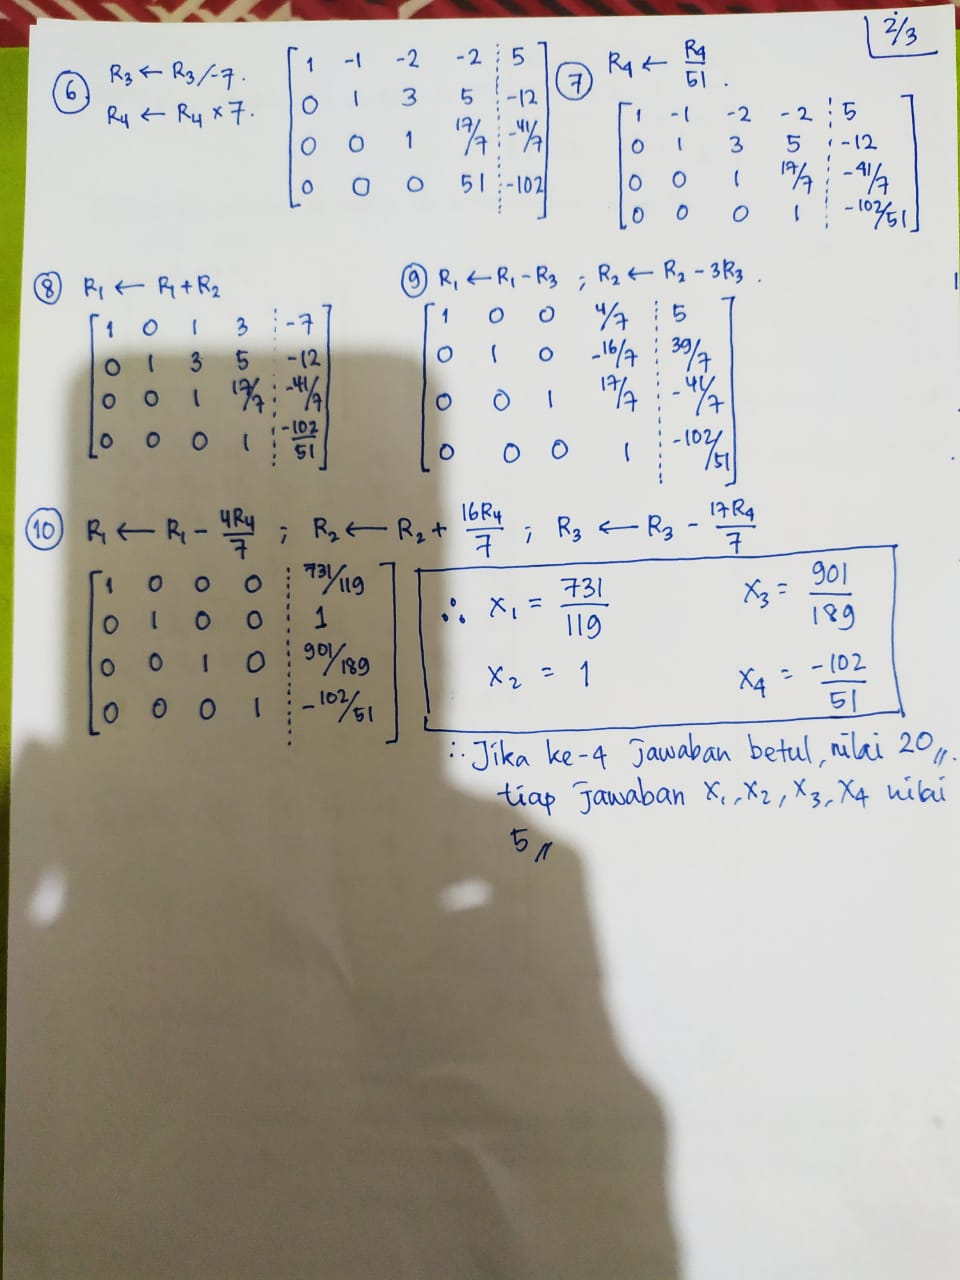 2/3
⑥ R3 ← R3/-7.
R4 ← R4 × 7.
1 -1 -2 -2 5
0 1 3 5 -12
0 0 1 17/7 -41/7
0 0 0 51 -102
⑦ R4 ← R4/51.
1 -1 -2 -2 5
0 1 3 5 -12
0 0 1 17/7 -41/7
0 0 0 1 -102/51
⑧ R1 ← R1 + R2
1 0 1 3 -7
0 1 3 5 -12
0 0 1 17/7 -41/7
0 0 0 1 -102/51
⑨ R1 ← R1 - R3 ; R2 ← R2 - 3R3.
1 0 0 4/7 5
0 1 0 -16/7 39/7
0 0 1 17/7 -41/7
0 0 0 1 -102/51
⑩ R1 ← R1 - 4R4/7 ; R2 ← R2 + 16R4/7 ; R3 ← R3 - 17R4/7
1 0 0 0 731/119
0 1 0 0 1
0 0 1 0 901/189
0 0 0 1 -102/51
∴ X1 = 731/119 X3 = 901/189
X2 = 1 X4 = -102/51
∴ Jika ke-4 jawaban betul, nilai 20,,.
tiap jawaban X1, X2, X3, X4 nilai
5,,